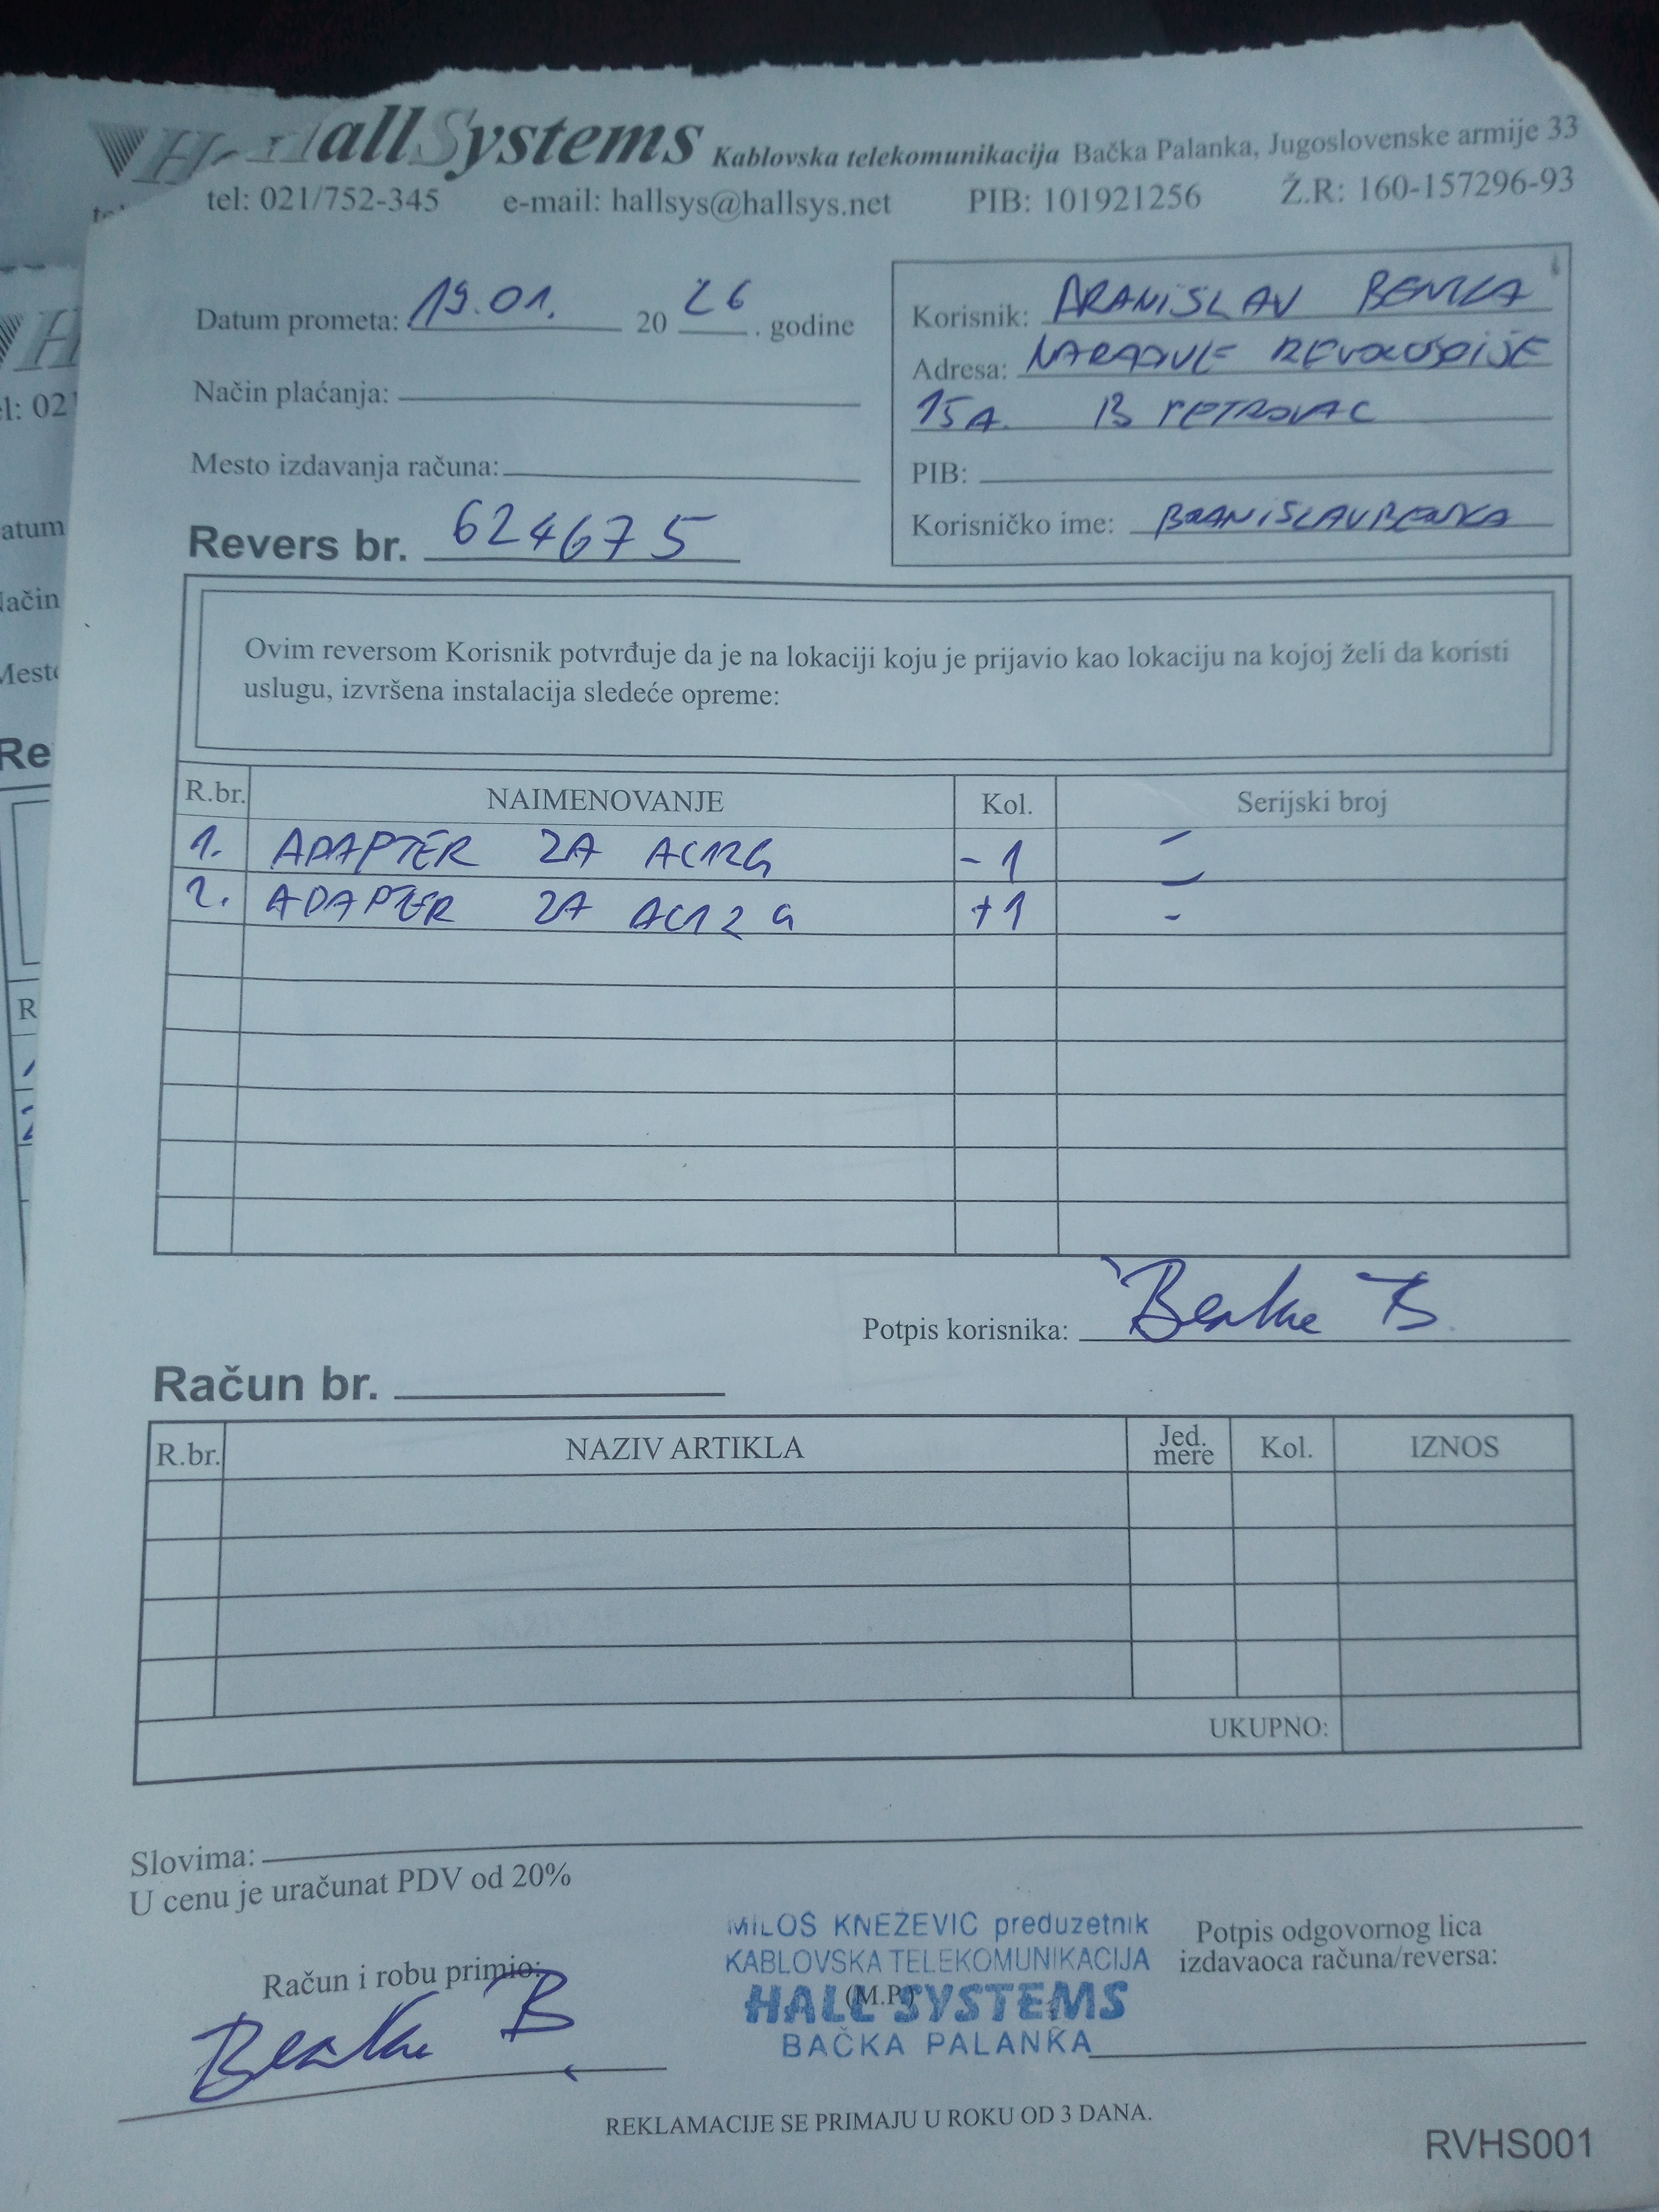 HallSystems Kablovska telekomunikacija Bačka Palanka, Jugoslovenske armije 33
tel: 021/752-345 e-mail: hallsys@hallsys.net PIB: 101921256 Ž.R: 160-157296-93
Datum prometa: 19.01. 20 26 . godine
Način plaćanja:
Mesto izdavanja računa:
Revers br. 624675
Korisnik: BRANISLAV BENKA
Adresa: NARODNE REVOLUCIJE
15A. B PETROVAC
PIB:
Korisničko ime: BRANISLAVBENKA
Ovim reversom Korisnik potvrđuje da je na lokaciji koju je prijavio kao lokaciju na kojoj želi da koristi
uslugu, izvršena instalacija sledeće opreme:
R.br. NAIMENOVANJE Kol. Serijski broj
1. ADAPTER 2A AC12G -1 -
2. ADAPTER 2A AC12G +1 -
Potpis korisnika: Benka B
Račun br.
R.br. NAZIV ARTIKLA Jed. mere Kol. IZNOS
UKUPNO:
Slovima:
U cenu je uračunat PDV od 20%
Račun i robu primio:
Benka B
MILOŠ KNEŽEVIĆ preduzetnik
KABLOVSKA TELEKOMUNIKACIJA
(M.P.)
HALL SYSTEMS
BAČKA PALANKA
Potpis odgovornog lica
izdavaoca računa/reversa:
REKLAMACIJE SE PRIMAJU U ROKU OD 3 DANA.
RVHS001